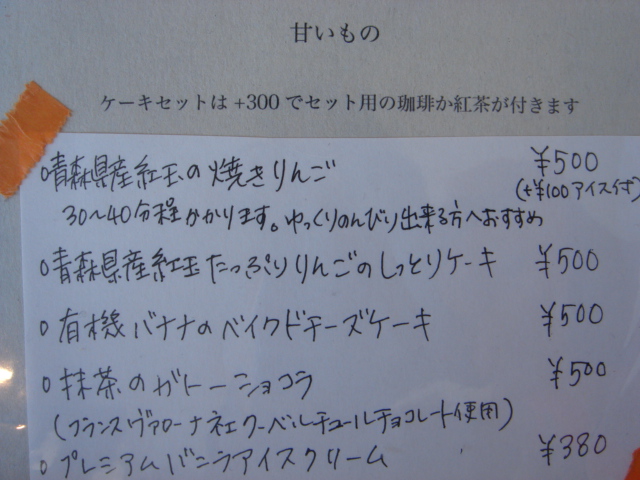 甘いもの
ケーキセットは+300でセット用の珈琲か紅茶が付きます
○青森県産紅玉の焼きりんご ¥500
(+¥100アイス付)
30〜40分程かかります。ゆっくりのんびり出来る方へおすすめ
○青森県産紅玉たっぷりりんごのしっとりケーキ ¥500
○有機バナナのベイクドチーズケーキ ¥500
○抹茶のガトーショコラ ¥500
(フランスヴァローナ社クーベルチュールチョコレート使用)
○プレミアムバニラアイスクリーム ¥380